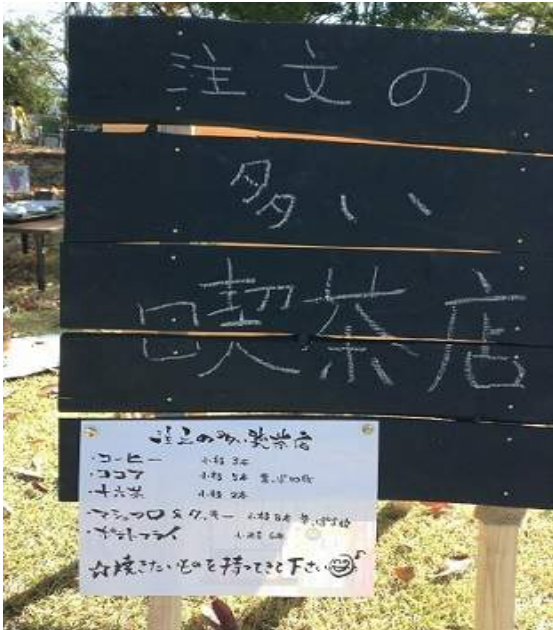 注文の
多い
喫茶店
注文の多い喫茶店
・コーヒー 小枝3本
・ココア 小枝5本 葉っぱ10枚
・十六茶 小枝2本
・マシュマロ&クッキー 小枝8本 葉っぱ5枚
・ポテトフライ 小枝6本
☆焼きたいものを持ってきて下さい